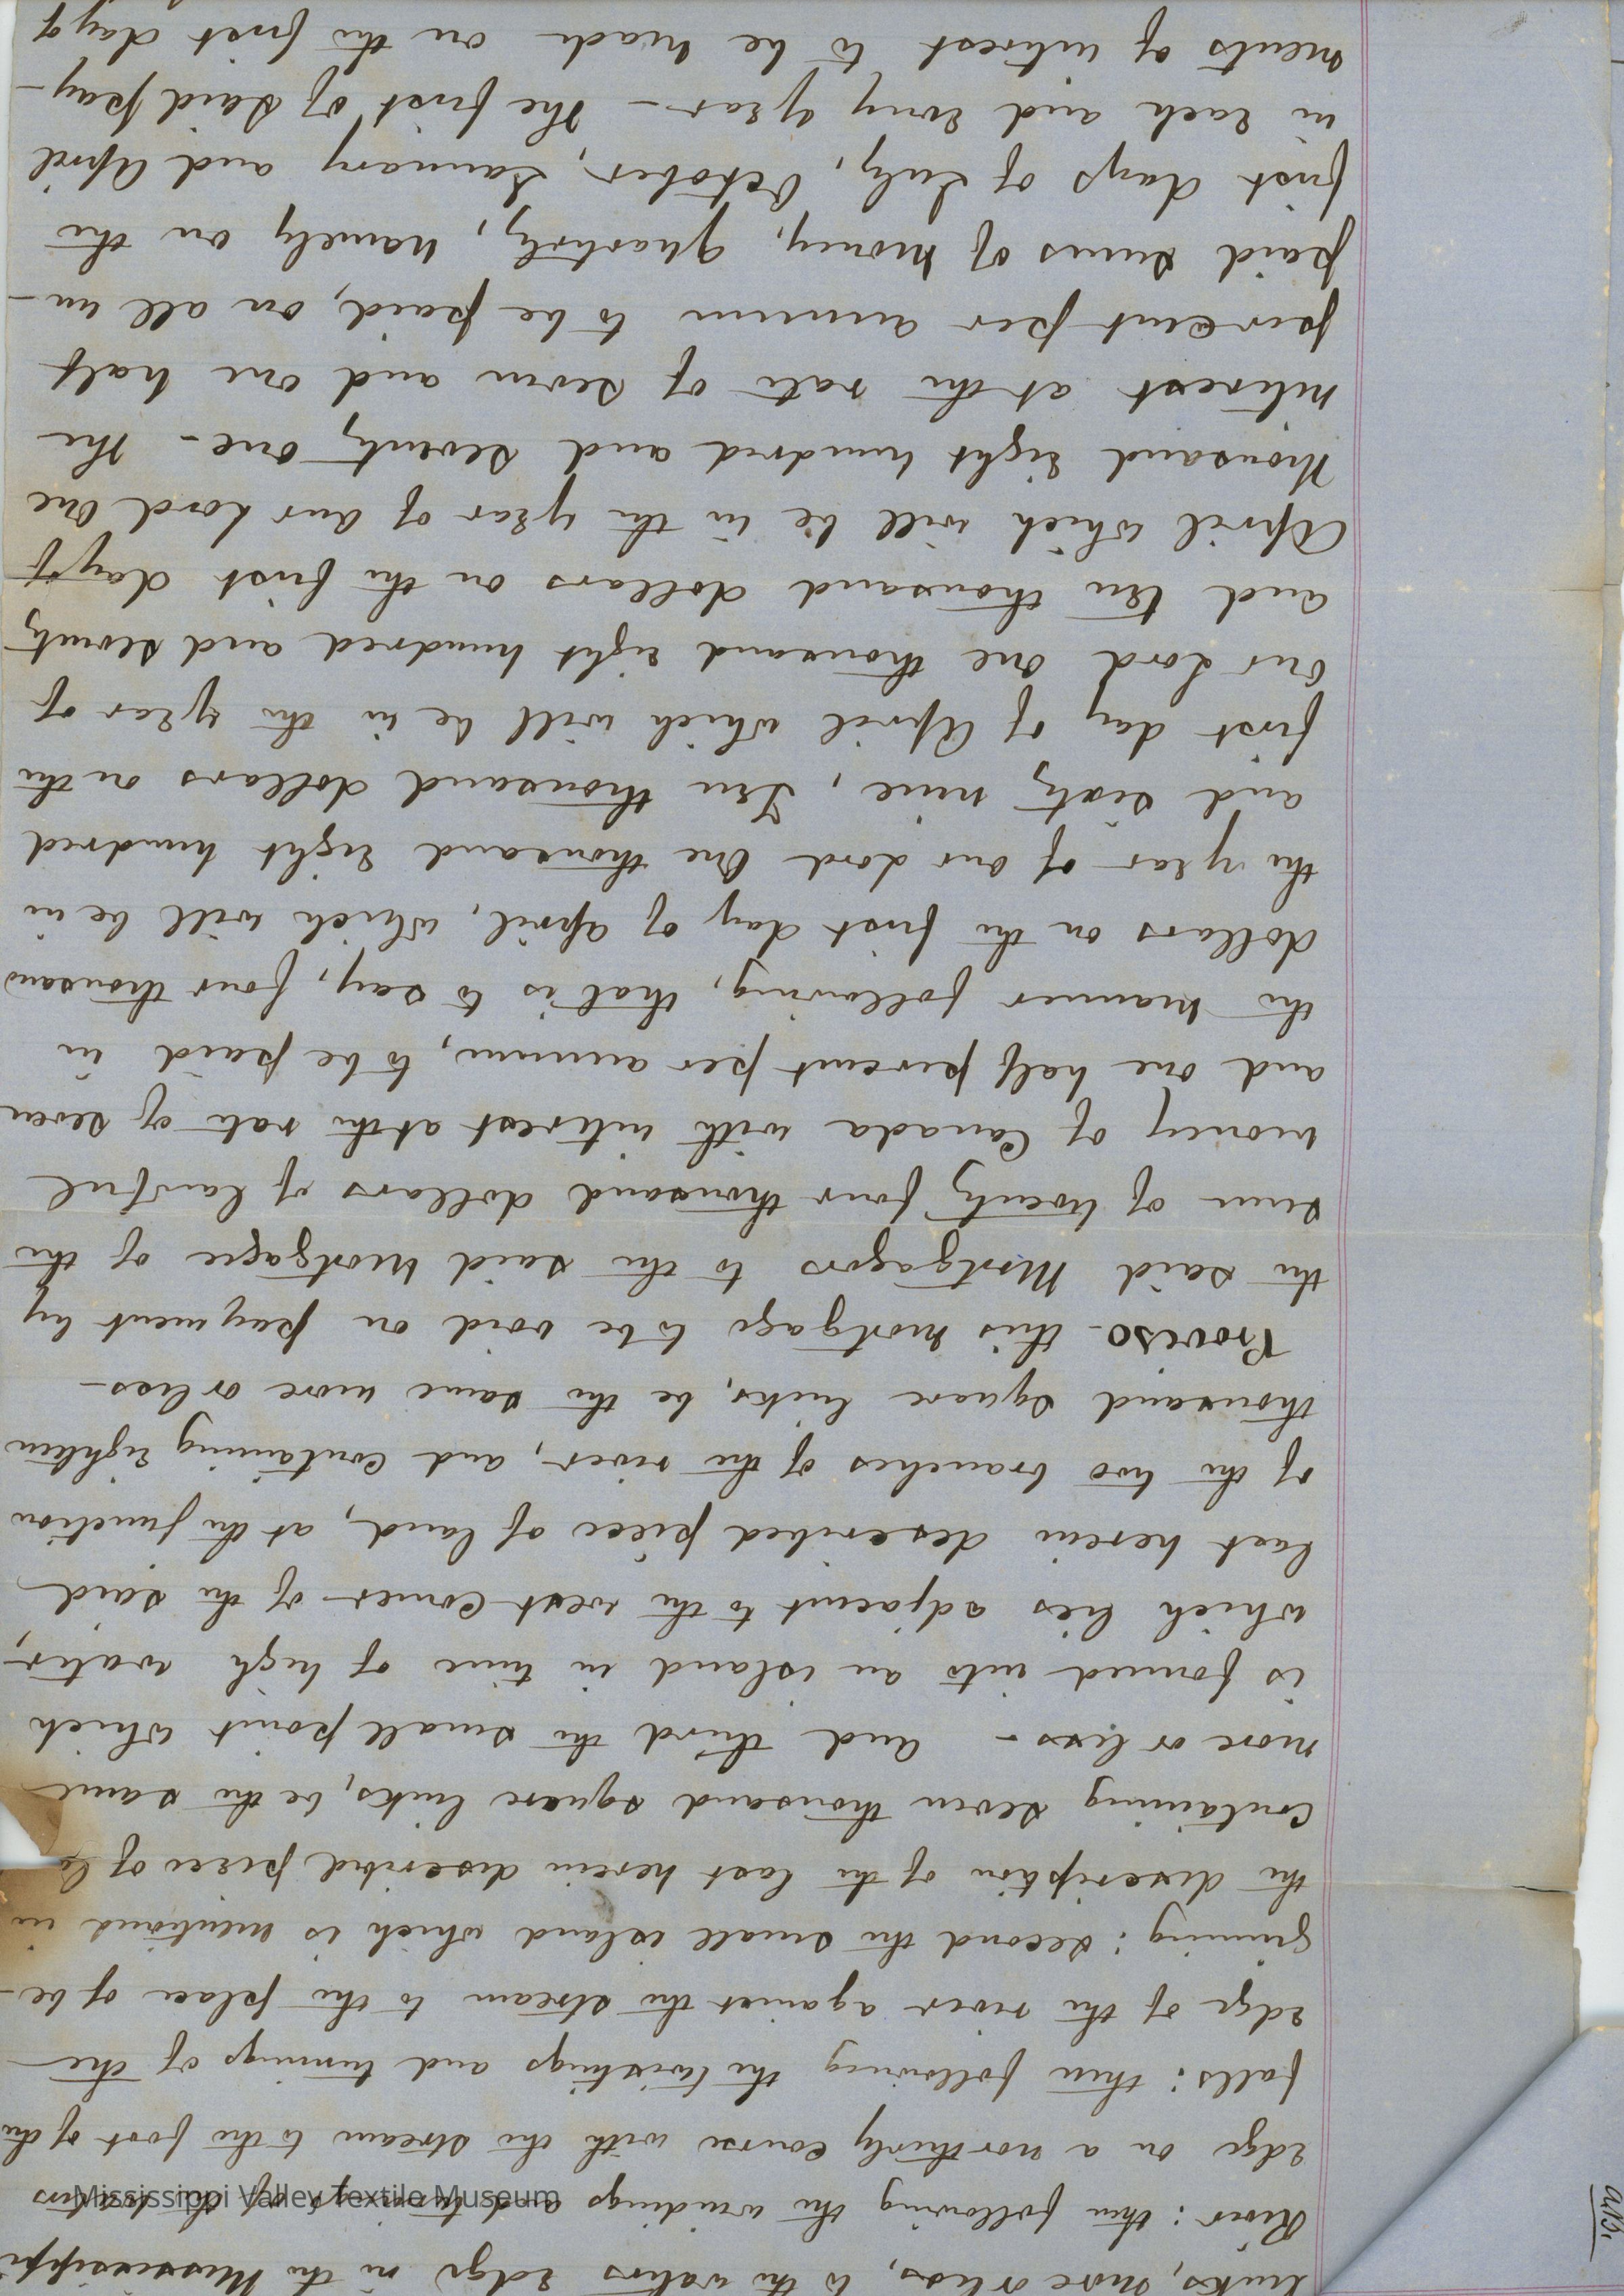 links, more or less, to the waters edge in the Mississippi
River: then following the windings and turnings of the waters
edge on a northerly course with the stream to the foot of the
falls: then following the twistings and turnings of the
edge of the river against the stream to the place of be-
ginning: second the small island which is mentioned in
the description of the last herein described piece of
containing seven thousand square links, be the same
more or less - and third the small point which
is formed into an island in time of high water,
which lies adjacent to the west corner of the said
last herein described piece of land, at the junction
of the two branches of the river, and containing eighteen
thousand square links, be the same more or less -
Proviso this mortgage to be void on payment by
the said Mortgagors to the said Mortgagee of the
sum of twenty four thousand dollars of lawful
money of Canada with interest at the rate of seven
and one half percent per annum, to be paid in
the manner following, that is to say, four thousand
dollars on the first day of April, which will be in
the year of our Lord One thousand Eight hundred
and sixty nine, Ten thousand dollars on the
first day of April which will be in the year of
our Lord one thousand eight hundred and seventy
and ten thousand dollars on the first day of
April which will be in the year of our Lord One
thousand eight hundred and seventy one - the
interest at the rate of seven and one half
percent per annum to be paid, on all un-
paid sums of money, quarterly, namely on the
first days of July, October, January and April
in each and every year - the first of said pay-
ments of interest to be made on the first day of
Mississippi Valley Textile Museum